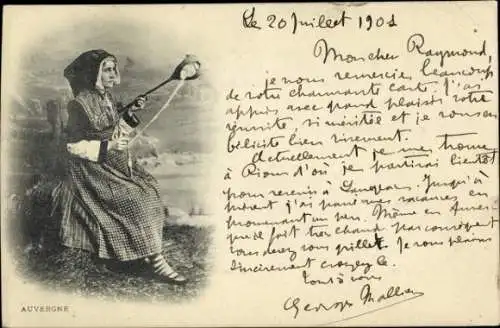 Le 20 Juillet 1901
Mon cher Raymond,
je vous remercie beaucoup
de votre charmante carte. J'ai
appris avec grand plaisir votre
réussite, si méritée et je vous en
félicite bien vivement.
Actuellement je me trouve
à Riom d'où je partirai bientôt
pour revenir à Langeac. Jusqu'à
présent j'ai passé mes vacances en
promenant un peu. Même en Auver
gne il fait bien chaud par conséquent
vous devez vous griller. Je vous plains
sincèrement croyez-le.
Tout à vous
Georges Mallien
AUVERGNE